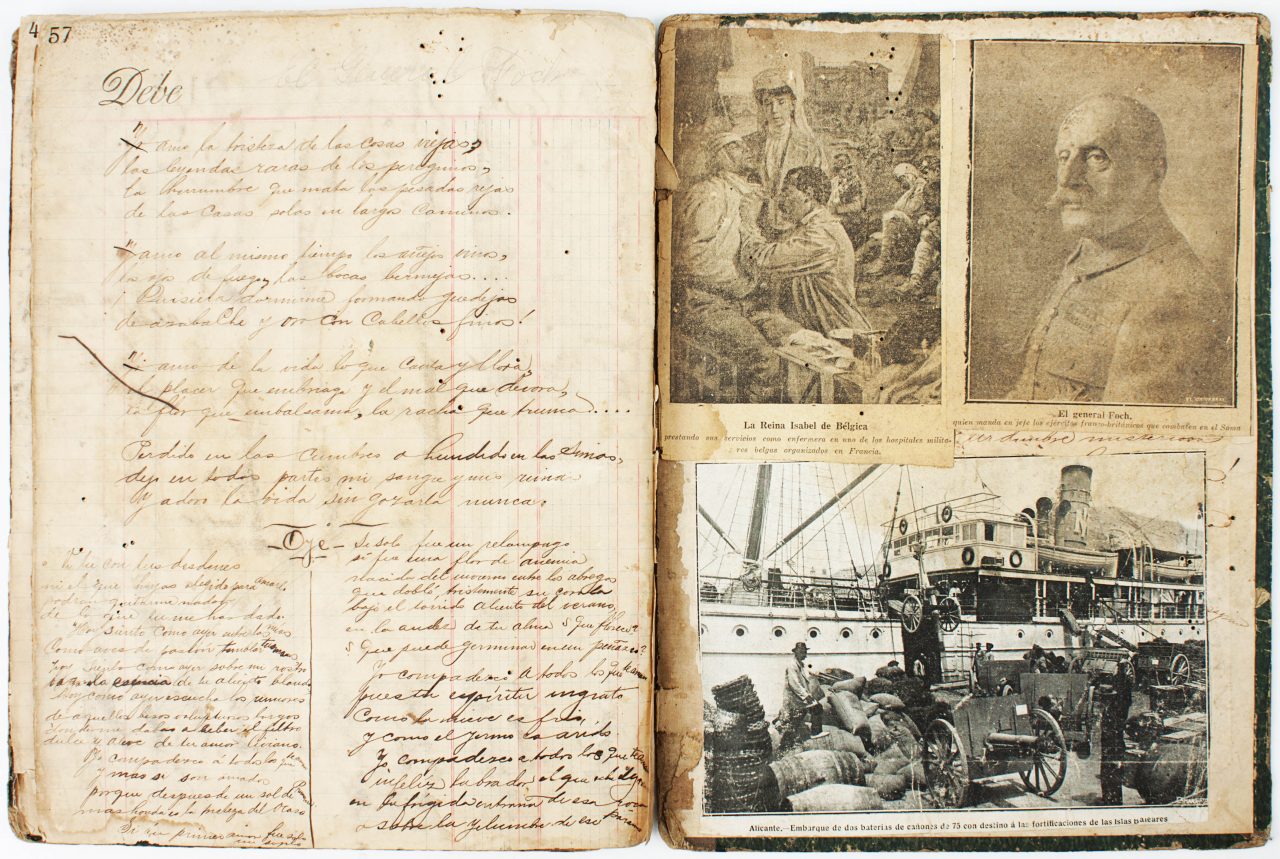 4 57
Debe
El General Foch
Yo amo la tristeza de las cosas viejas,
las leyendas raras de los peregrinos,
la herrumbre que mata las pesadas rejas
de las casas solas en largos caminos.
amo al mismo tiempo los añejos vinos,
los ojos de fuego, las bocas bermejas....
¡Quisiera dormirme formando guedejas
de azabache y oro con cabellos finos!
amo de la vida lo que canta y llora,
el placer que embriaga y el mal que devora,
la flor que embalsama, la racha que trunca....
Perdido en las cumbres o hundido en las simas,
dejo en todas partes mi sangre y mis rimas
y adoro la vida sin gozarla nunca.
- Oye -
Ni tu con tus desdenes
ni el que hayas elegido para amarlo
podrán quitarme nada
de lo que tu me has dado
Hoy siento como ayer sobre
Como aves de pasión
hoy siento como ayer sobre mi rostro
la esencia de tu aliento blando
hoy como ayer escucho los rumores
de aquellos besos voluptuosos largos
donde me dabas a beber el filtro
dulce de tu amor liviano.
Yo compadezco á todos los que
y mas si son amados
porque despues de un sol de
mas honda es la tristeza del ocaso
Si solo fue un relampago
si fue una flor de anemia
nacida del invierno entre los abrogo
que dobló, tristemente, su corola
bajo el torrido aliento del verano,
en la aridez de tu alma ¿Que florece?
¿Que puede germinar en un peñasco?
Yo compadezco a todos los que te aman
pues tu espiritu ingrato
como la nieve es frio,
y como el yermo es arido.
Y compadezco a todos los que te aman
infeliz labrador, el que
en la frigida entraña de esa roca
o sobre la de ese paramo
La Reina Isabel de Bélgica
prestando sus servicios como enfermera en uno de los hospitales milita-
res belgas organizados en Francia.
El general Foch,
quien manda en jefe los ejércitos franco-británicos que combaten en el Soma
Alicante.—Embarque de dos baterías de cañones de 75 con destino á las fortificaciones de las Islas Baleares